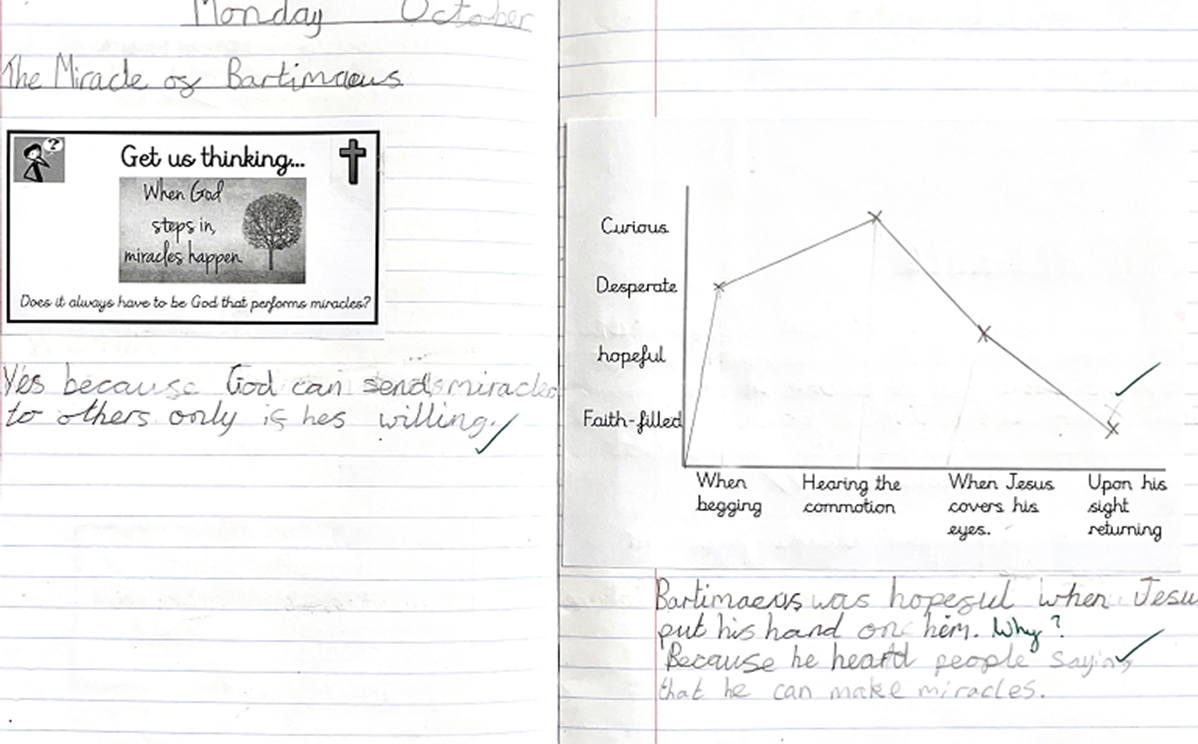 Monday October
The Miracle of Bartimaeus
?
Get us thinking...
When God
steps in,
miracles happen
Does it always have to be God that performs miracles?
Yes because God can send miracles
to others only if hes willing.
Curious
Desperate
hopeful
Faith-filled
When
begging
Hearing the
commotion
When Jesus
covers his
eyes.
Upon his
sight
returning
Bartimaeus was hopeful when Jesu
put his hand on him. Why?
Because he heard people saying
that he can make miracles.